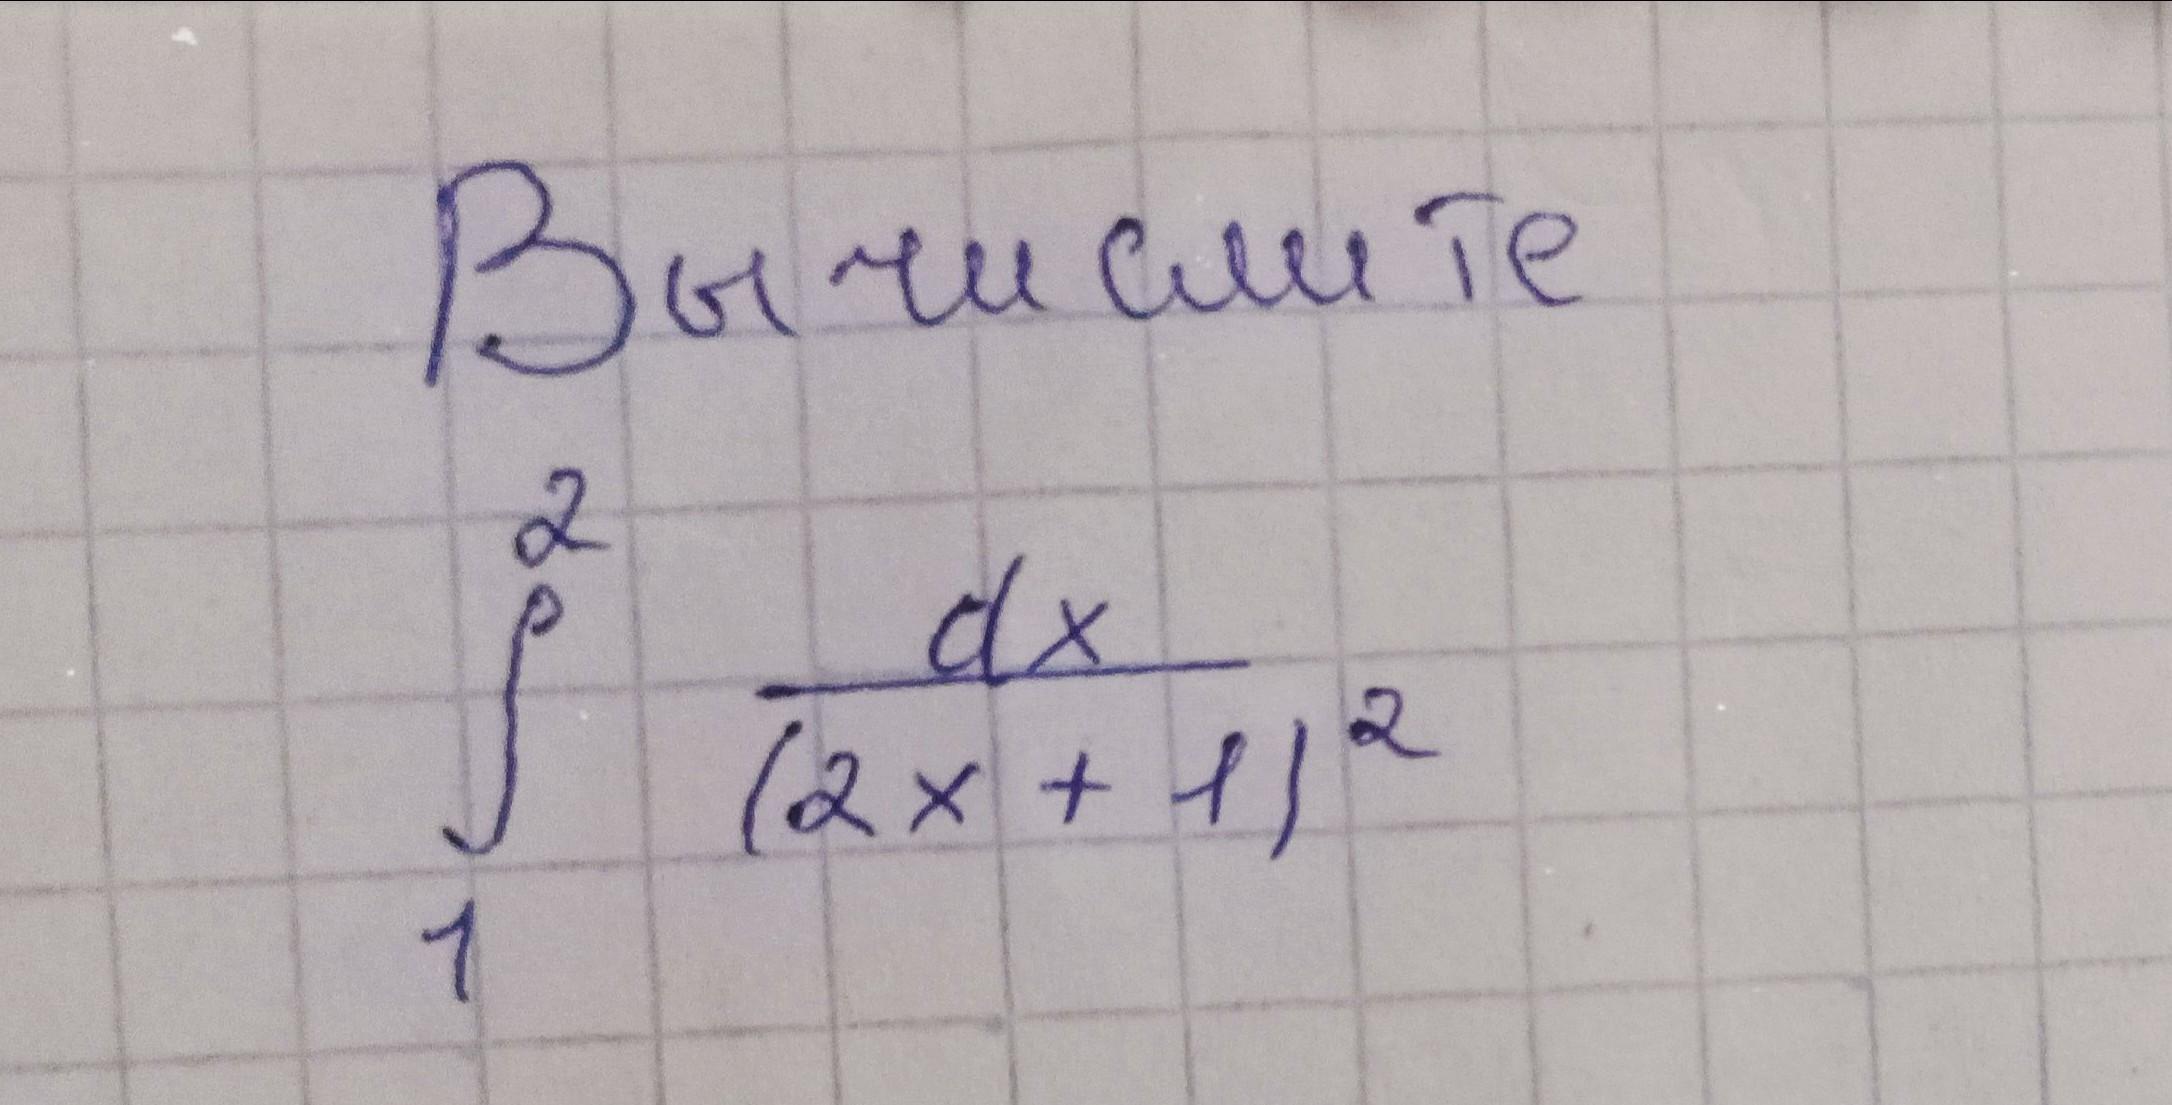 Вычислите
2
∫ dx
(2x + 1)²
1